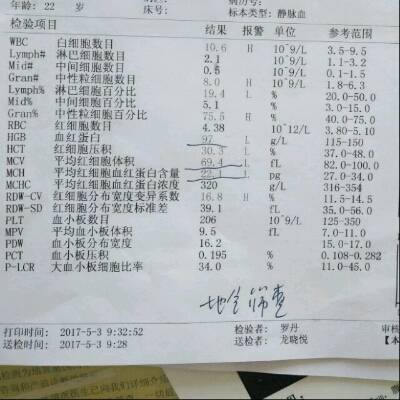 年龄: 22 岁 病历号:
床号: 标本类型: 静脉血
检验项目 结果 报警 单位 参考范围
WBC 白细胞数目 10.6 H 10^9/L 3.5-9.5
Lymph# 淋巴细胞数目 2.1 10^9/L 1.1-3.2
Mid# 中间细胞数目 0.5 10^9/L 0.1-1.5
Gran# 中性粒细胞数目 8.0 H 10^9/L 1.8-6.3
Lymph% 淋巴细胞百分比 19.4 L % 20.0-50.0
Mid% 中间细胞百分比 5.1 % 3.0-15.0
Gran% 中性粒细胞百分比 75.5 H % 40.0-75.0
RBC 红细胞数目 4.38 10^12/L 3.80-5.10
HGB 血红蛋白 97 L g/L 115-150
HCT 红细胞压积 30.3 L % 37.0-48.0
MCV 平均红细胞体积 69.4 L fL 82.0-100.0
MCH 平均红细胞血红蛋白含量 22.1 L pg 27.0-34.0
MCHC 平均红细胞血红蛋白浓度 320 g/L 316-354
RDW-CV 红细胞分布宽度变异系数 16.8 H % 11.5-14.5
RDW-SD 红细胞分布宽度标准差 39.1 fL 35.0-56.0
PLT 血小板数目 206 10^9/L 125-350
MPV 平均血小板体积 9.5 fL 7.0-11.0
PDW 血小板分布宽度 16.2 15.0-17.0
PCT 血小板压积 0.195 % 0.108-0.282
P-LCR 大血小板细胞比率 34.0 % 11.0-45.0
地全筛查
打印时间: 2017-5-3 9:32:52 检验者: 罗丹 审核
送检时间: 2017-5-3 9:28 送检者: 龙晓悦 【本